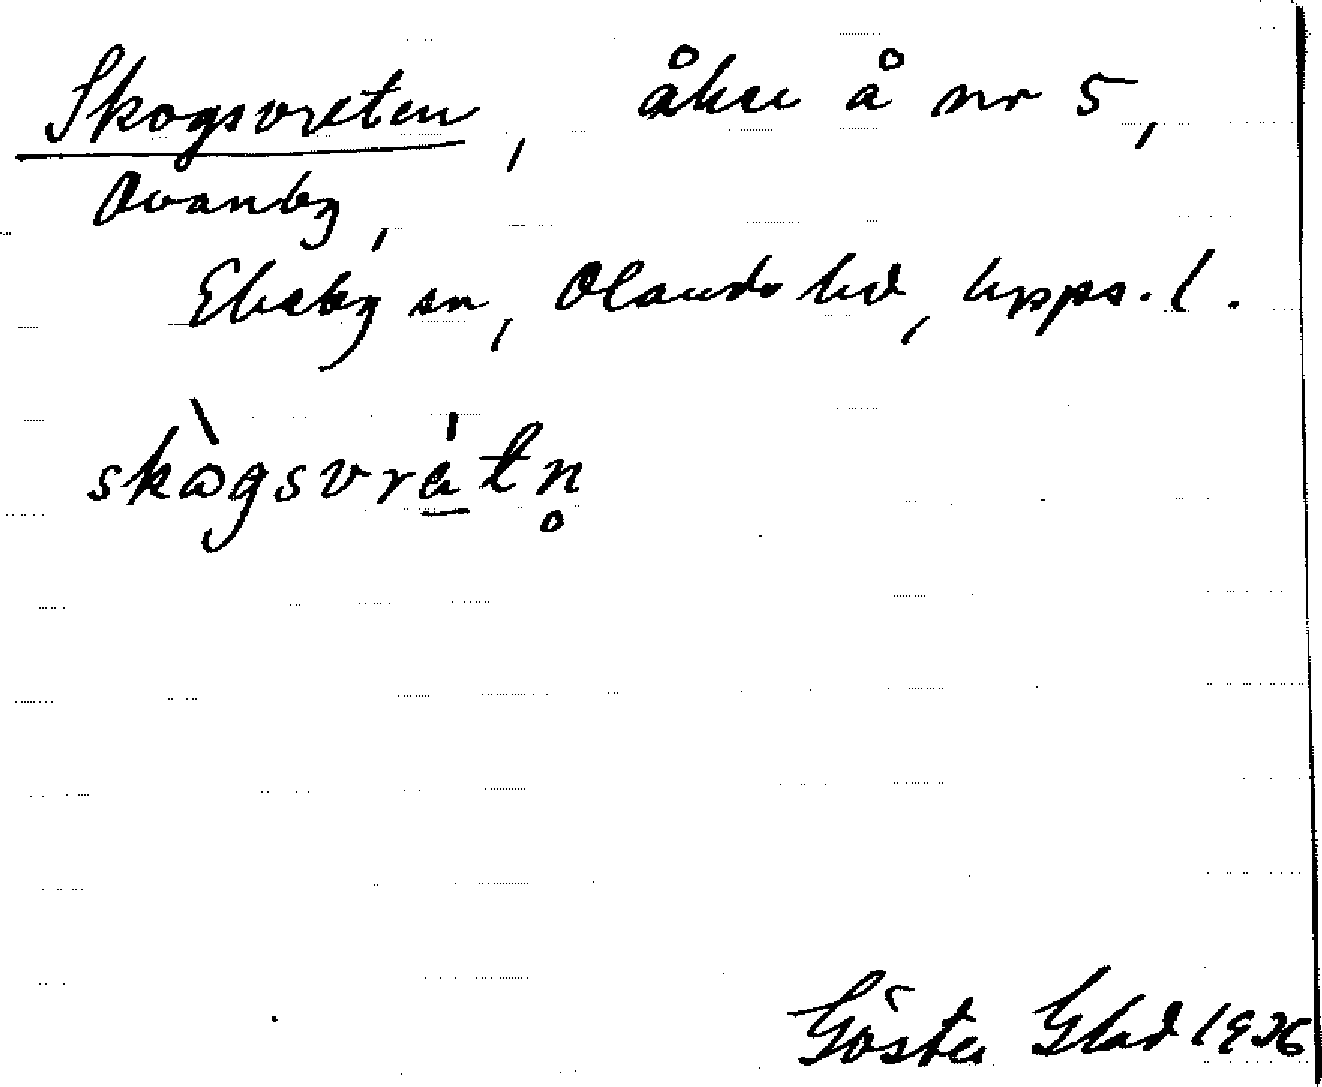 Skogsvreten, åker å nr 5,
Ovanby,
Ekeby sn, Olands hd, Upps. l.
skògsvrätn̥
Gösta Glad 1936